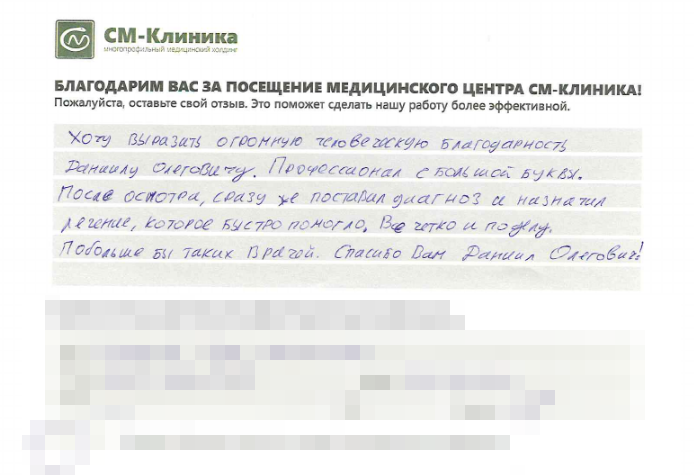 СМ-Клиника
многопрофильный медицинский холдинг
БЛАГОДАРИМ ВАС ЗА ПОСЕЩЕНИЕ МЕДИЦИНСКОГО ЦЕНТРА СМ-КЛИНИКА!
Пожалуйста, оставьте свой отзыв. Это поможет сделать нашу работу более эффективной.
Хочу выразить огромную человеческую благодарность
Даниилу Олеговичу. Профессионал с большой буквы.
После осмотра, сразу же поставил диагноз и назначил
лечение, которое быстро помогло. Все четко и по делу.
Побольше бы таких врачей. Спасибо Вам Даниил Олегович!